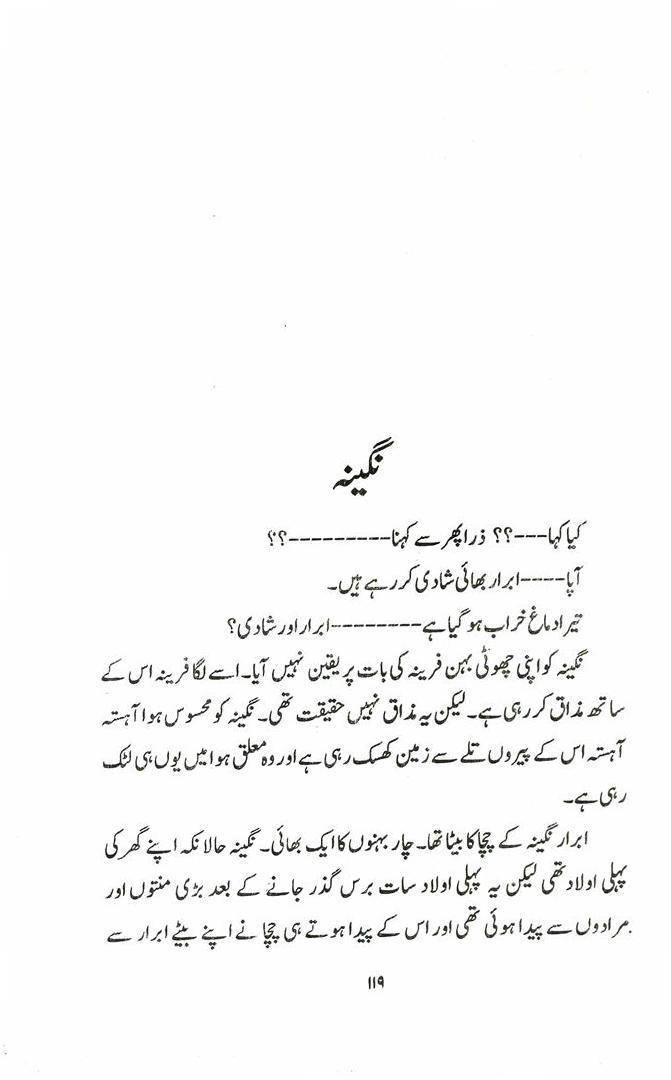 نگینہ
کیا کہا---؟؟ ذرا پھر سے کہنا---------؟؟
آپا-----ابرار بھائی شادی کر رہے ہیں۔
تیرا دماغ خراب ہو گیا ہے---------ابرار اور شادی؟
نگینہ کو اپنی چھوٹی بہن فرینہ کی بات پر یقین نہیں آیا۔ اسے لگا فرینہ اس کے
ساتھ مذاق کر رہی ہے۔ لیکن یہ مذاق نہیں حقیقت تھی۔ نگینہ کو محسوس ہوا آہستہ
آہستہ اس کے پیروں تلے سے زمین کھسک رہی ہے اور وہ معلق ہوا میں یوں ہی لٹک
رہی ہے۔
ابرار نگینہ کے چچا کا بیٹا تھا۔ چار بہنوں کا ایک بھائی۔ نگینہ حالانکہ اپنے گھر کی
پہلی اولاد تھی لیکن یہ پہلی اولاد سات برس گذر جانے کے بعد بڑی منتوں اور
مرادوں سے پیدا ہوئی تھی اور اس کے پیدا ہوتے ہی چچا نے اپنے بیٹے ابرار سے
۱۱۹